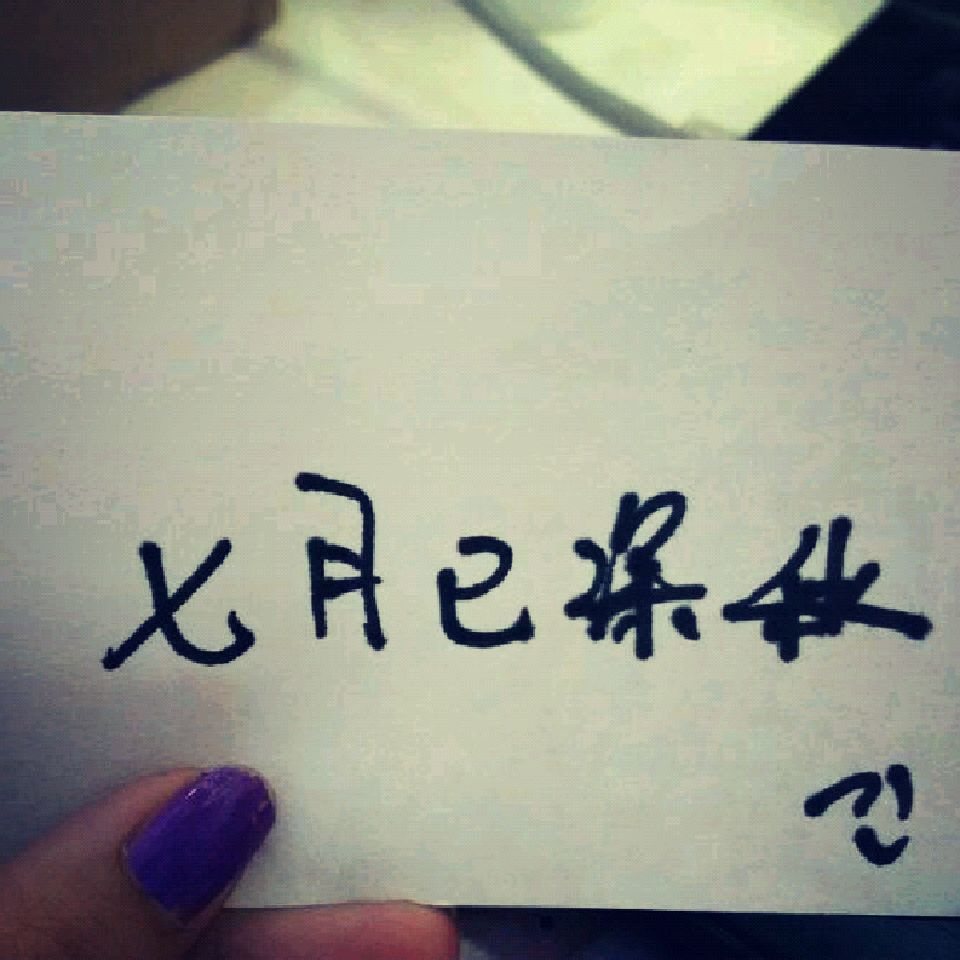 七月已深秋
긴